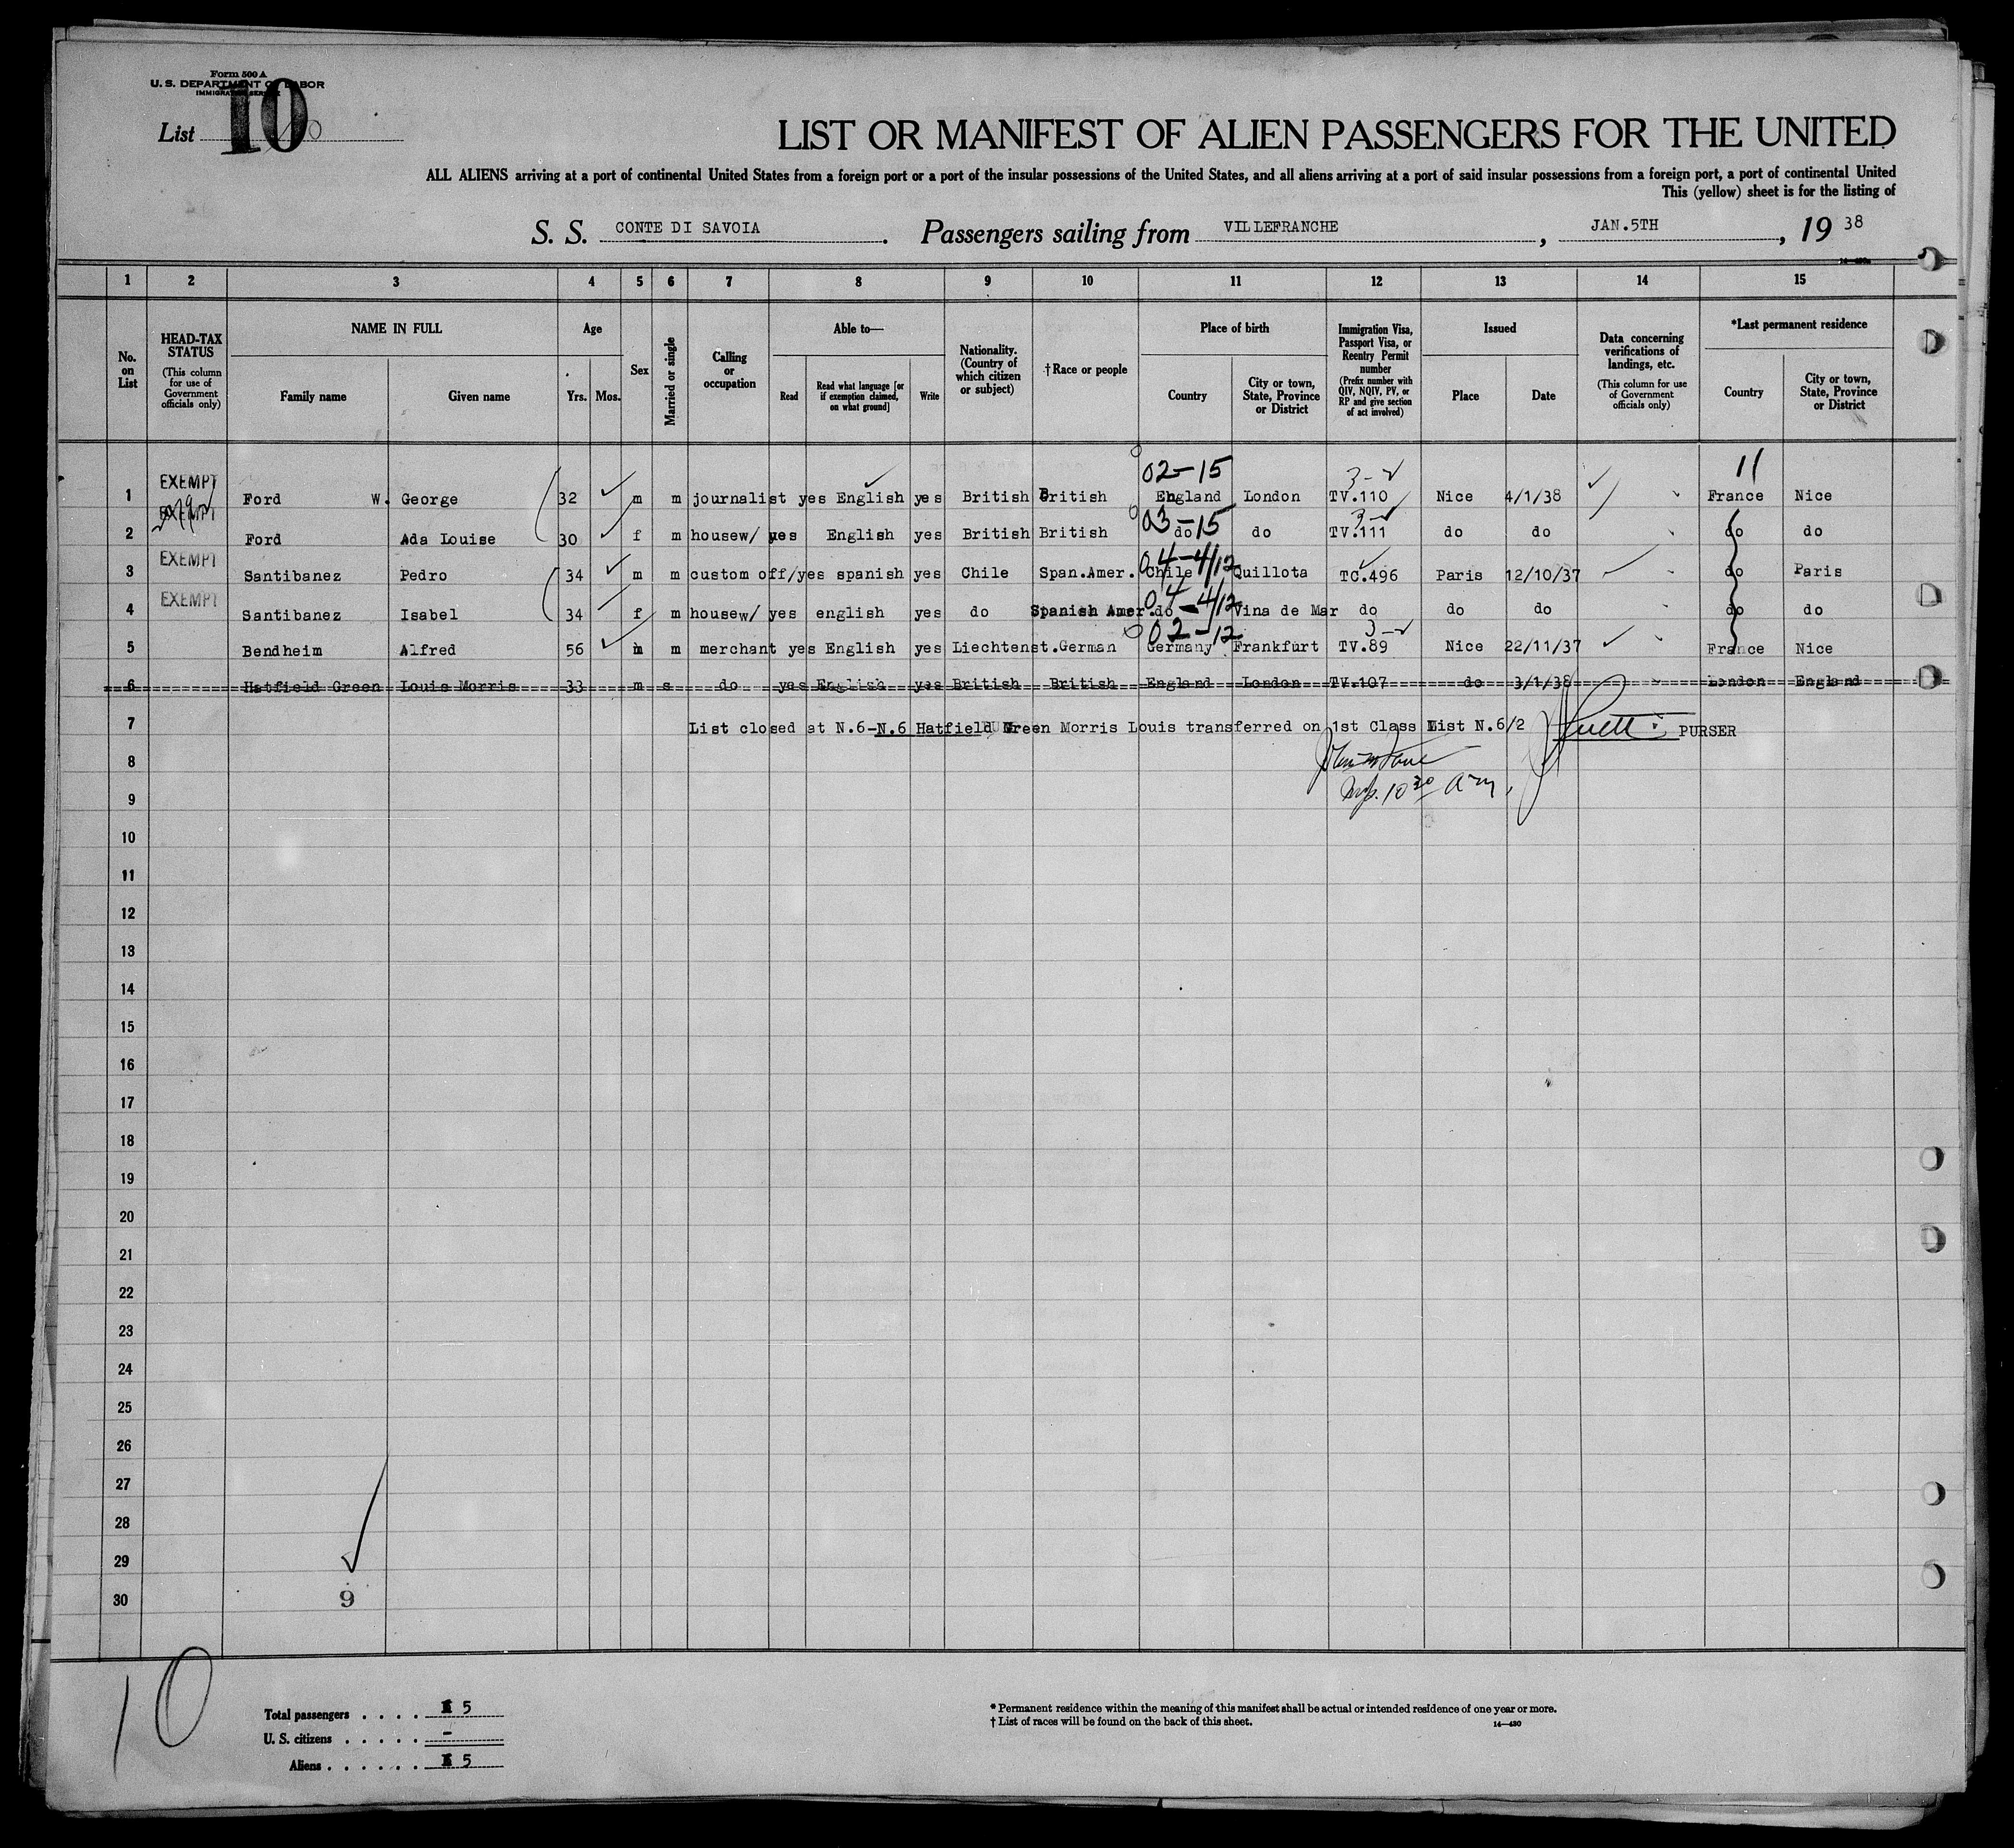 Form 500 A
U. S. DEPARTMENT OF LABOR
IMMIGRATION SERVICE
List 10
10
LIST OR MANIFEST OF ALIEN PASSENGERS FOR THE UNITED
ALL ALIENS arriving at a port of continental United States from a foreign port or a port of the insular possessions of the United States, and all aliens arriving at a port of said insular possessions from a foreign port, a port of continental United
This (yellow) sheet is for the listing of
S. S. CONTE DI SAVOIA. Passengers sailing from VILLEFRANCHE, JAN.5TH, 19 38
1 2 3 4 5 6 7 8 9 10 11 12 13 14 15
No. on List
HEAD-TAX STATUS (This column for use of Government officials only)
NAME IN FULL
Family name Given name
Age
Yrs. Mos.
Sex
Married or single
Calling or occupation
Able to—
Read Read what language [or if exemption claimed, on what ground] Write
Nationality. (Country of which citizen or subject)
†Race or people
Place of birth
Country City or town, State, Province or District
Immigration Visa, Passport Visa, or Reentry Permit number (Prefix number with QIV, NQIV, PV, or RP and give section of act involved)
Issued
Place Date
Data concerning verifications of landings, etc. (This column for use of Government officials only)
*Last permanent residence
Country City or town, State, Province or District
02-15 3- 11
1 EXEMPT Ford W. George 32 m m journalist yes English yes British British England London TV.110 Nice 4/1/38 France Nice
03-15 3-
2 EXEMPT Ford Ada Louise 30 f m housew/ yes English yes British British do do TV.111 do do do do
04-4/12
3 EXEMPT Santibanez Pedro 34 m m custom off/yes spanish yes Chile Span.Amer. Chile Quillota TC.496 Paris 12/10/37 do Paris
04-4/12
4 EXEMPT Santibanez Isabel 34 f m housew/ yes english yes do Spanish Amer.do Vina de Mar do do do do do
02-12 3-
5 Bendheim Alfred 56 m m merchant yes English yes Liechtenst.German Germany Frankfurt TV.89 Nice 22/11/37 France Nice
6 Hatfield Green Louis Morris 33 m s do yes English yes British British England London TV.107 do 3/1/38 London England
7 List closed at N.6-N.6 Hatfield Green Morris Louis transferred on 1st Class List N.6/2 PURSER
8
9 10 30 am
10
11
12
13
14
15
16
17
18
19
20
21
22
23
24
25
26
27
28
29
30 9
10
Total passengers . . . . 5
U. S. citizens . . . . . -
Aliens . . . . . . 5
* Permanent residence within the meaning of this manifest shall be actual or intended residence of one year or more.
† List of races will be found on the back of this sheet.
14—430